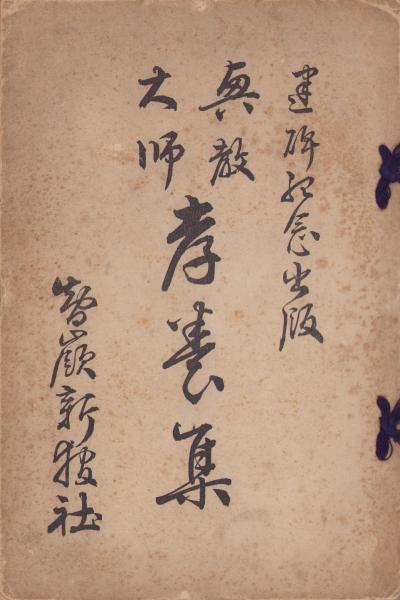 建碑紀念出版
興教
大師
孝養集
智嶺新報社